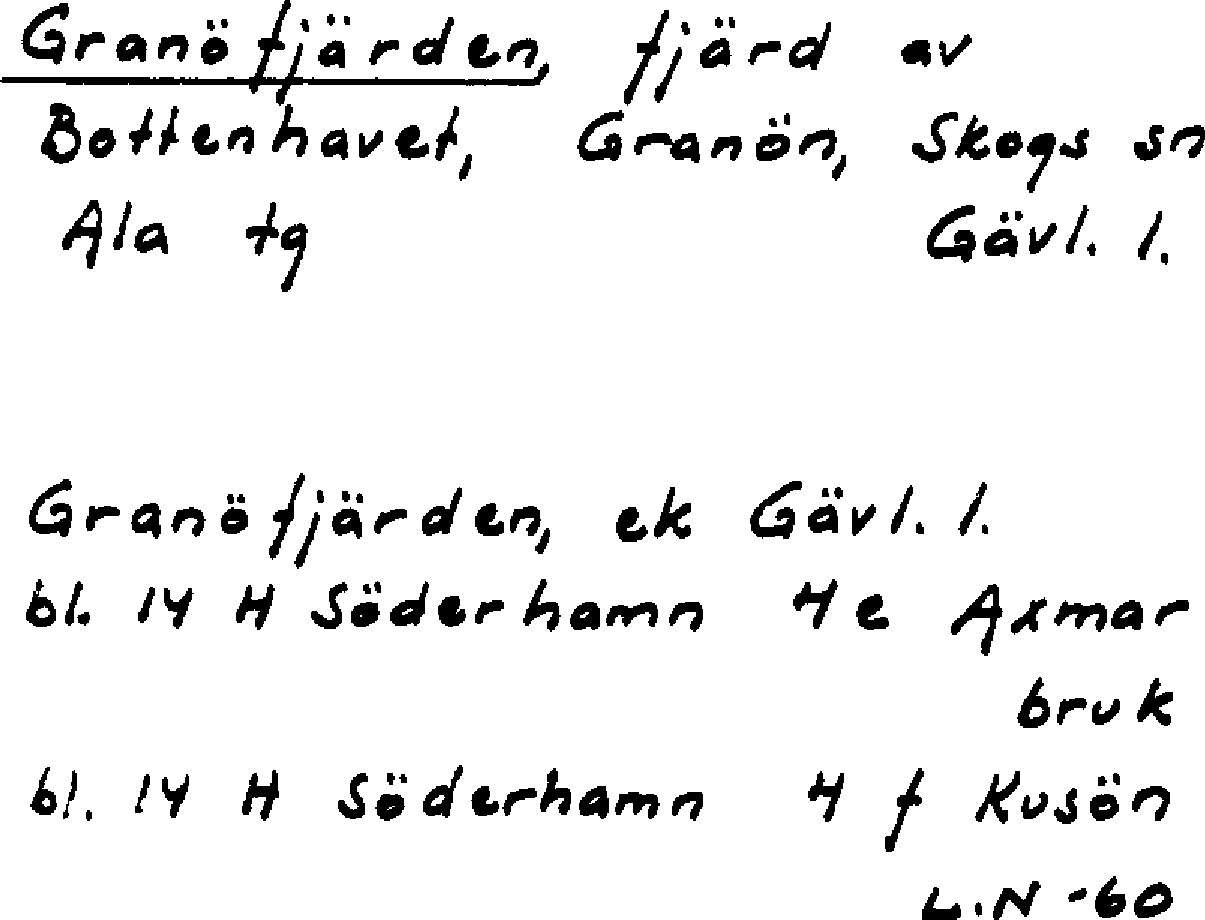 Granöfjärden, fjärd av
Bottenhavet, Granön, Skogs sn
Ala tg Gävl. l.
Granöfjärden, ek Gävl. l.
bl. 14 H Söderhamn 4e Axmar
bruk
bl. 14 H Söderhamn 4 f Kusön
L.N -60